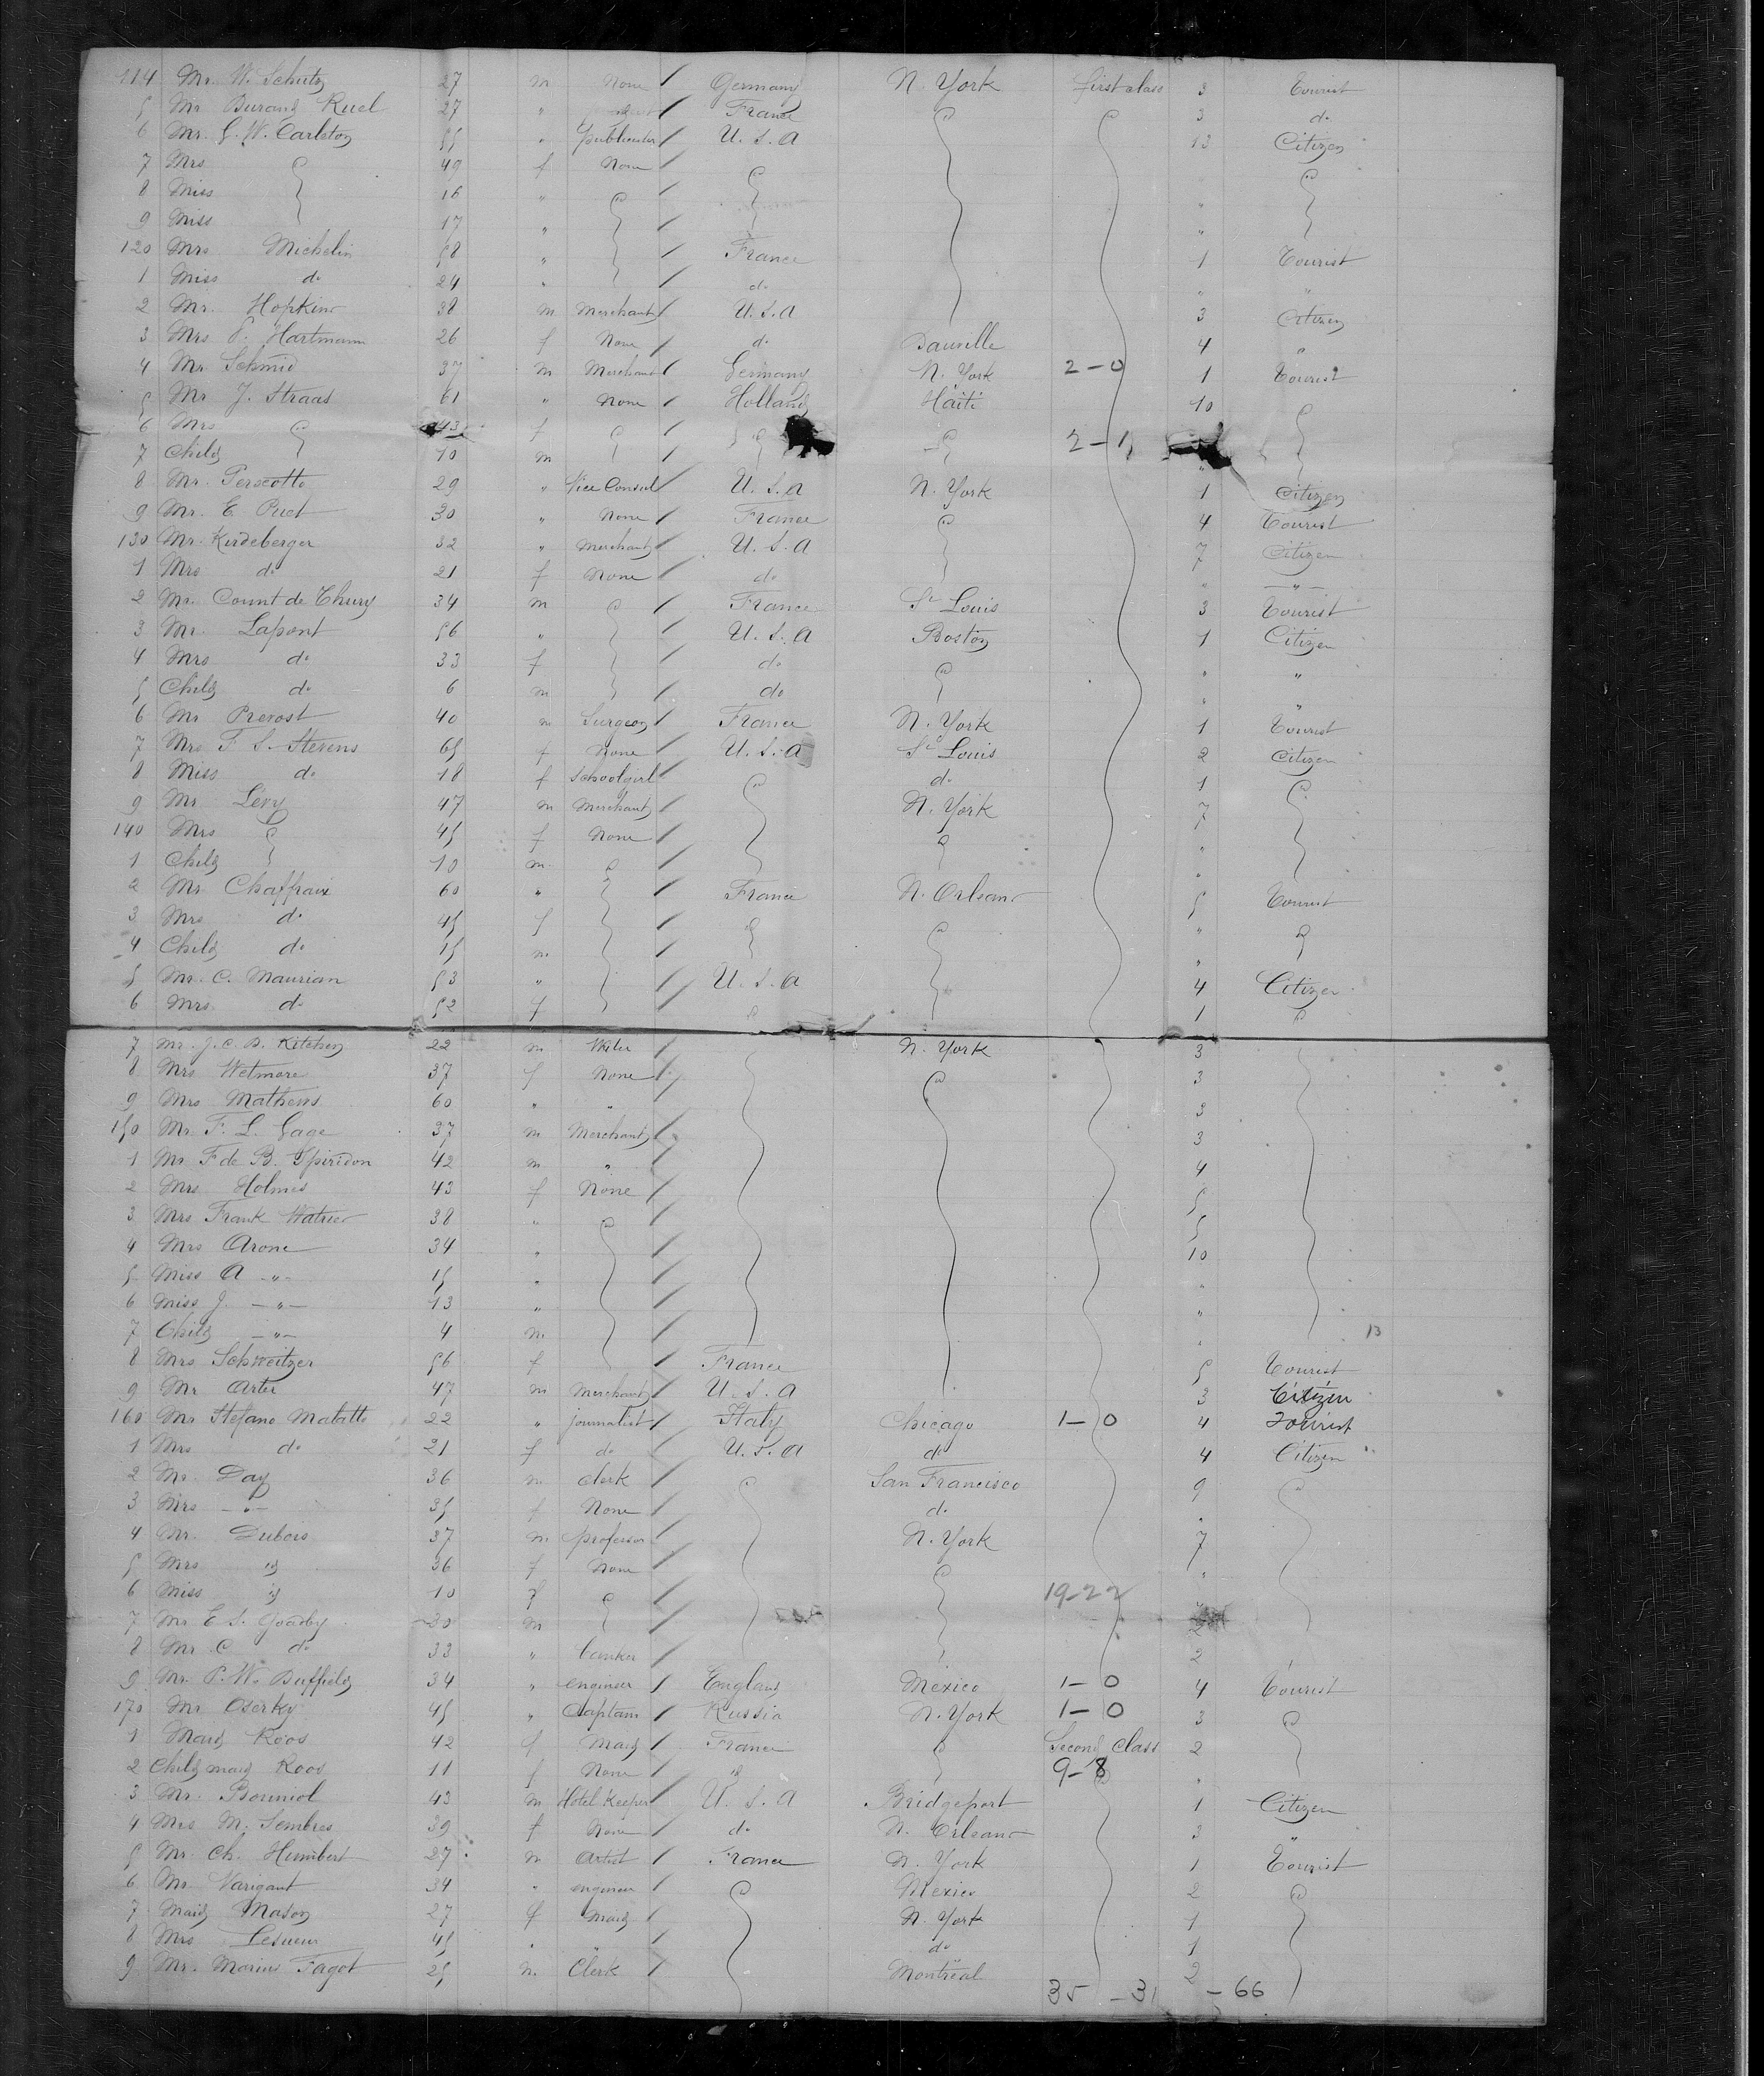 114 Mr. W. Schutz 27 m None / Germany N. York first class 3 Tourist
5 Mr Durand Ruel 27 " / France 3 do
6 Mr. G. W. Carleton 55 " publisher / U. S. A 13 Citizen
7 Mrs 49 f None /
8 Miss 16 " / "
9 Miss 17 " / "
120 Mrs Michelin 58 " / France 1 Tourist
1 Miss do 24 " / do " "
2 Mr. Hopkins 38 m Merchant / U. S. A 3 Citizen
3 Mrs P. Hartmann 26 f None / do Danville 4 "
4 Mr. Schmid 37 m Merchant / Germany N. York 2-0 1 Tourist
5 Mr J. Straas 61 " None / Holland Haiti 10
6 Mrs 43 f / 2-1
7 Child 10 m / "
8 Mr. Perscotto 29 " Vice Consul / U. S. A N. York 1 Citizen
9 Mr. E Puet 30 " None / France 4 Tourist
130 Mr. Kerdeberger 32 " Merchant / U. S. A 7 Citizen
1 Mrs do 21 f None / do " "
2 Mr. Count de Thury 34 m / France St Louis 3 Tourist
3 Mr. Lapont 56 " / U. S. A Boston 1 Citizen
4 Mrs do 33 f / do " "
5 Child do 6 m / do " "
6 Mr Prevost 40 m Surgeon / France N. York 1 Tourist
7 Mrs F. S. Stevens 65 f None / U. S. A St Louis 2 Citizen
8 Miss do 18 f Schoolgirl / do 1
9 Mr Levy 47 m Merchant / N. York 7
140 Mrs 45 f None / "
1 Child 10 m / "
2 Mr Chaffraix 60 " / France N. Orleans 5 Tourist
3 Mrs do 45 f / "
4 Child do 15 m / "
5 Mr. C. Maurian 53 " / U. S. A 4 Citizen
6 Mrs do 52 f / 1
7 Mr. J. C. B. Kitchen 22 m / N. York 3
8 Mrs Wetmore 37 f None / 3
9 Mrs Mathews 60 " " / 3
150 Mr. F. L. Gage 37 m Merchant / 3
1 Mr F de B. Spiridon 42 m " / 4
2 Mrs Holmes 43 f None / 5
3 Mrs Frank 38 " / 5
4 Mrs Arone 34 " / 10
5 Miss A -"- 15 " / "
6 Miss J. -"- 13 " / "
7 Child -"- 4 m. / " 13
8 Mrs Schweitzer 56 f / France 5 Tourist
9 Mr Arter 47 m Merchant / U. S. A 3 Citizen
160 Mr Stefano Matatto 22 " journalist / Italy Chicago 1-0 4 Tourist
1 Mrs do 21 f do / U. S. A do 4 Citizen
2 Mr. Day 36 m Clerk / San Francisco 9
3 Mrs -"- 35 f None / do "
4 Mr. Dubois 37 m. professor / N. York 7
5 Mrs id 36 f None / "
6 Miss id 10 f / 19-22 "
7 Mr E S. Goadby 30 m / 2
8 Mr C do 33 " banker / 2
9 Mr. P. W. Duffield 34 " engineer / England Mexico 1-0 4 Tourist
170 Mr Oserky 45 " Captain / Russia N. York 1-0 3
1 Maid Koos 42 f Maid / France Second Class 2
2 Child maid Koos 11 f None / id 9-8 "
3 Mr. Bouniol 43 m Hotel Keeper / U. S. A Bridgeport 1 Citizen
4 Mrs M. Sembres 39 f None / do N. Orleans 3 "
5 Mr. Ch. Humbert 27 m Artist / France N. York 1 Tourist
6 Mr. Varigant 34 " engineer / Mexico 2
7 Maid Mason 27 f Maid / N. York 1
8 Mrs Lesueur 45 " " / do 1
9 Mr. Marius Fagot 25 m. Clerk / Montreal 2
35 - 31 - 66